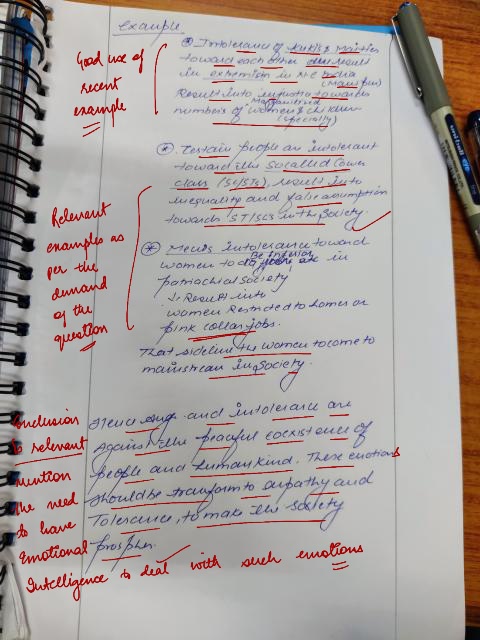 example.
Good use of
recent
example
* Intolerance of Kukis & Meities
toward each other result
in extremism in N.E India
(Manipur)
Result into injustice towards
Marginalised
numbers of women & children
(specially)
* Certain people are intolerant
toward the Socalled Lower
class (SC/STs), result into
inequality and false assumption
towards ST/SCs in the Society.
Relevant
examples as
per the
demand
of the
question
* Men's intolerance toward
women to Be inferior in
patriachial society
↓ Result into
women Restricted to homes or
pink collar jobs.
That sideline the women to come to
mainstream in society.
Conclusion
is relevant
mention
the need
to have
Emotional
Intelligence to deal with such emotions
Hence and intolerance are
Against the peaceful coexistence of
people and humankind. These emotions
should be transform to empathy and
Tolerance, to make the society
prosper.
uni-ball eye